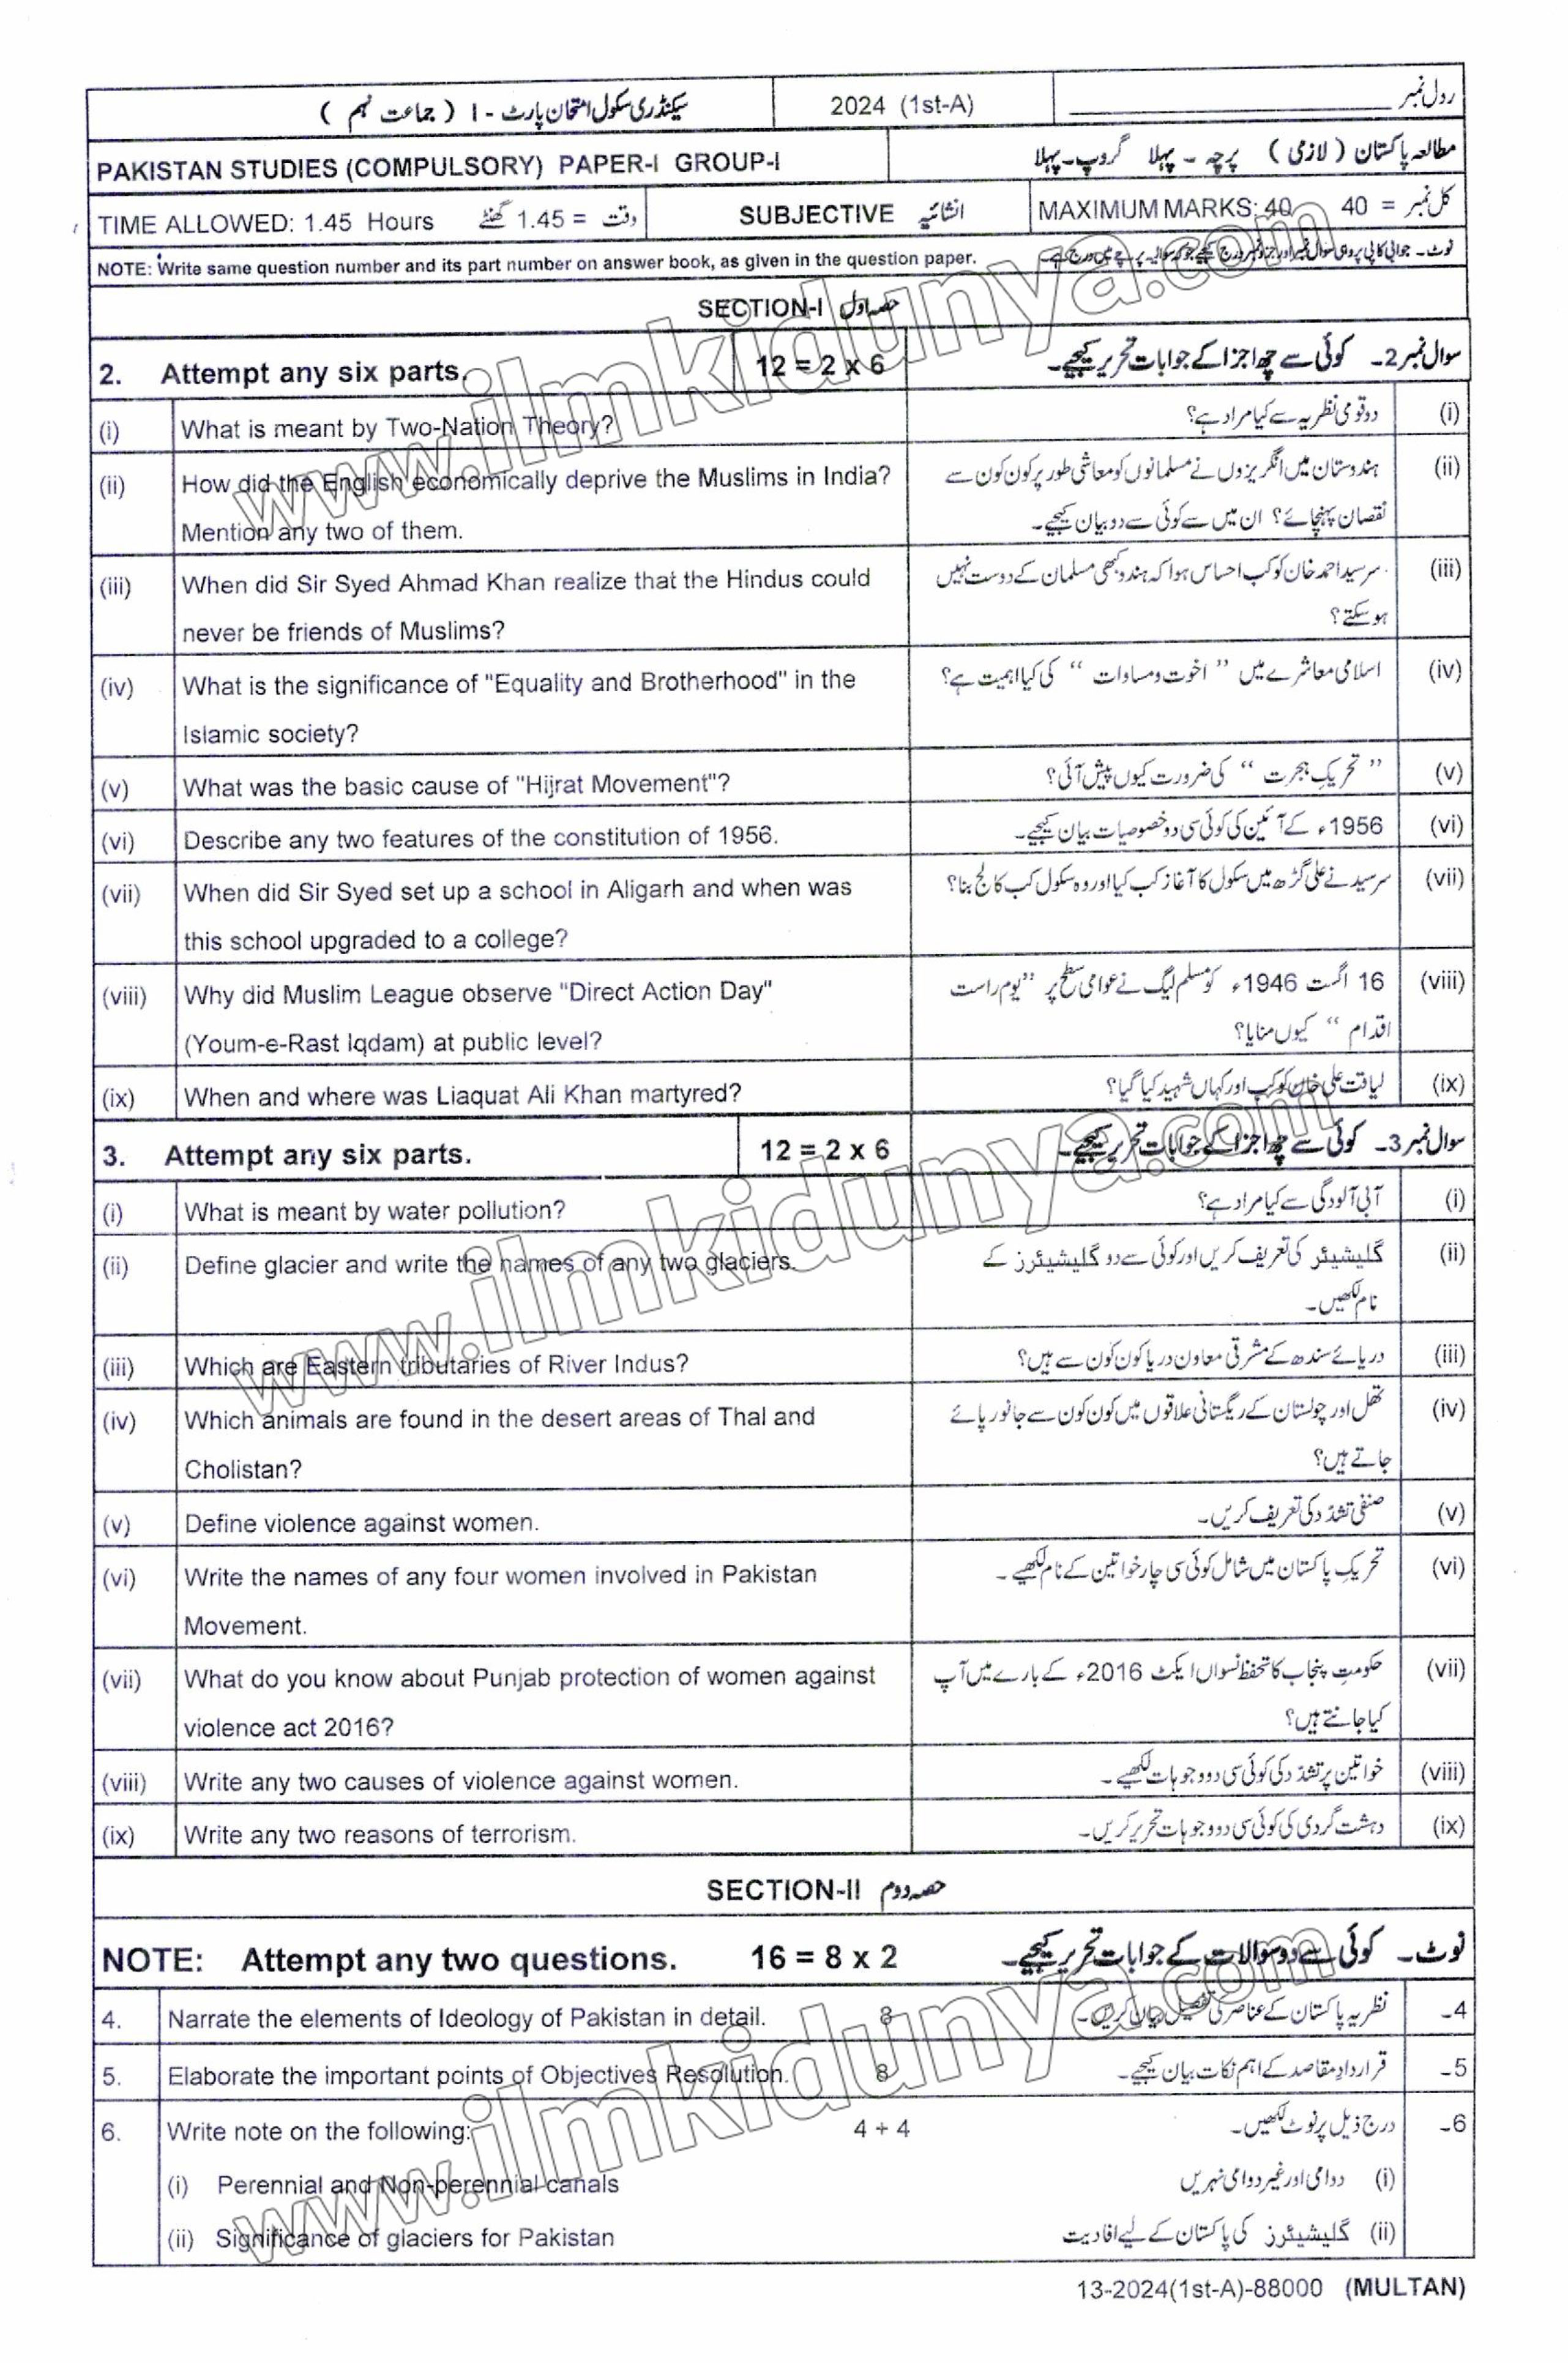 سیکنڈری سکول امتحان پارٹ - I ( جماعت نہم )
2024 (1st-A)
رول نمبر
PAKISTAN STUDIES (COMPULSORY) PAPER-I GROUP-I
مطالعہ پاکستان ( لازمی ) پرچہ - پہلا گروپ-پہلا
TIME ALLOWED: 1.45 Hours
وقت = 1.45 گھنٹے
SUBJECTIVE انشائیہ
MAXIMUM MARKS: 40
کل نمبر = 40
NOTE: Write same question number and its part number on answer book, as given in the question paper.
نوٹ۔ جوابی کاپی پر وہی سوال نمبر اور جزو نمبر درج کیجیے جو کہ سوالیہ پرچے میں درج ہے۔
SECTION-I حصہ اول
2. Attempt any six parts.
12 = 2 x 6
سوال نمبر 2۔ کوئی سے چھ اجزا کے جوابات تحریر کیجیے۔
(i) What is meant by Two-Nation Theory?
دو قومی نظریہ سے کیا مراد ہے؟ (i)
(ii) How did the English economically deprive the Muslims in India?
Mention any two of them.
ہندوستان میں انگریزوں نے مسلمانوں کو معاشی طور پر کون کون سے (ii)
نقصان پہنچائے؟ ان میں سے کوئی سے دو بیان کیجیے۔
(iii) When did Sir Syed Ahmad Khan realize that the Hindus could
never be friends of Muslims?
سر سید احمد خان کو کب احساس ہوا کہ ہندو کبھی مسلمان کے دوست نہیں (iii)
ہو سکتے؟
(iv) What is the significance of "Equality and Brotherhood" in the
Islamic society?
اسلامی معاشرے میں ’’ اخوت و مساوات ‘‘ کی کیا اہمیت ہے؟ (iv)
(v) What was the basic cause of "Hijrat Movement"?
’’ تحریکِ ہجرت ‘‘ کی ضرورت کیوں پیش آئی؟ (v)
(vi) Describe any two features of the constitution of 1956.
1956ء کے آئین کی کوئی سی دو خصوصیات بیان کیجیے۔ (vi)
(vii) When did Sir Syed set up a school in Aligarh and when was
this school upgraded to a college?
سر سید نے علی گڑھ میں سکول کا آغاز کب کیا اور وہ سکول کب کالج بنا؟ (vii)
(viii) Why did Muslim League observe "Direct Action Day"
(Youm-e-Rast Iqdam) at public level?
16 اگست 1946ء کو مسلم لیگ نے عوامی سطح پر ’’یوم راست (viii)
اقدام ‘‘ کیوں منایا؟
(ix) When and where was Liaquat Ali Khan martyred?
لیاقت علی خان کو کب اور کہاں شہید کیا گیا؟ (ix)
3. Attempt any six parts.
12 = 2 x 6
سوال نمبر 3۔ کوئی سے چھ اجزا کے جوابات تحریر کیجیے۔
(i) What is meant by water pollution?
آبی آلودگی سے کیا مراد ہے؟ (i)
(ii) Define glacier and write the names of any two glaciers.
گلیشیئر کی تعریف کریں اور کوئی سے دو گلیشیئرز کے (ii)
نام لکھیں۔
(iii) Which are Eastern tributaries of River Indus?
دریائے سندھ کے مشرقی معاون دریا کون کون سے ہیں؟ (iii)
(iv) Which animals are found in the desert areas of Thal and
Cholistan?
تھل اور چولستان کے ریگستانی علاقوں میں کون کون سے جانور پائے (iv)
جاتے ہیں؟
(v) Define violence against women.
صنفی تشدّد کی تعریف کریں۔ (v)
(vi) Write the names of any four women involved in Pakistan
Movement.
تحریکِ پاکستان میں شامل کوئی سی چار خواتین کے نام لکھیے۔ (vi)
(vii) What do you know about Punjab protection of women against
violence act 2016?
حکومتِ پنجاب کا تحفظ نسواں ایکٹ 2016ء کے بارے میں آپ (vii)
کیا جانتے ہیں؟
(viii) Write any two causes of violence against women.
خواتین پر تشدّد کی کوئی سی دو وجوہات لکھیے۔ (viii)
(ix) Write any two reasons of terrorism.
دہشت گردی کی کوئی سی دو وجوہات تحریر کریں۔ (ix)
SECTION-II حصہ دوم
NOTE: Attempt any two questions. 16 = 8 x 2
نوٹ۔ کوئی سے دو سوالات کے جوابات تحریر کیجیے۔
4. Narrate the elements of Ideology of Pakistan in detail. 8
نظریہ پاکستان کے عناصر کی تفصیل بیان کریں۔ 4۔
5. Elaborate the important points of Objectives Resolution. 8
قراردادِ مقاصد کے اہم نکات بیان کیجیے۔ 5۔
6. Write note on the following: 4 + 4
درج ذیل پر نوٹ لکھیں۔ 6۔
(i) Perennial and Non-perennial canals
(i) دوامی اور غیر دوامی نہریں
(ii) Significance of glaciers for Pakistan
(ii) گلیشیئرز کی پاکستان کے لیے افادیت
13-2024(1st-A)-88000 (MULTAN)
www.ilmkidunya.com
www.ilmkidunya.com
www.ilmkidunya.com